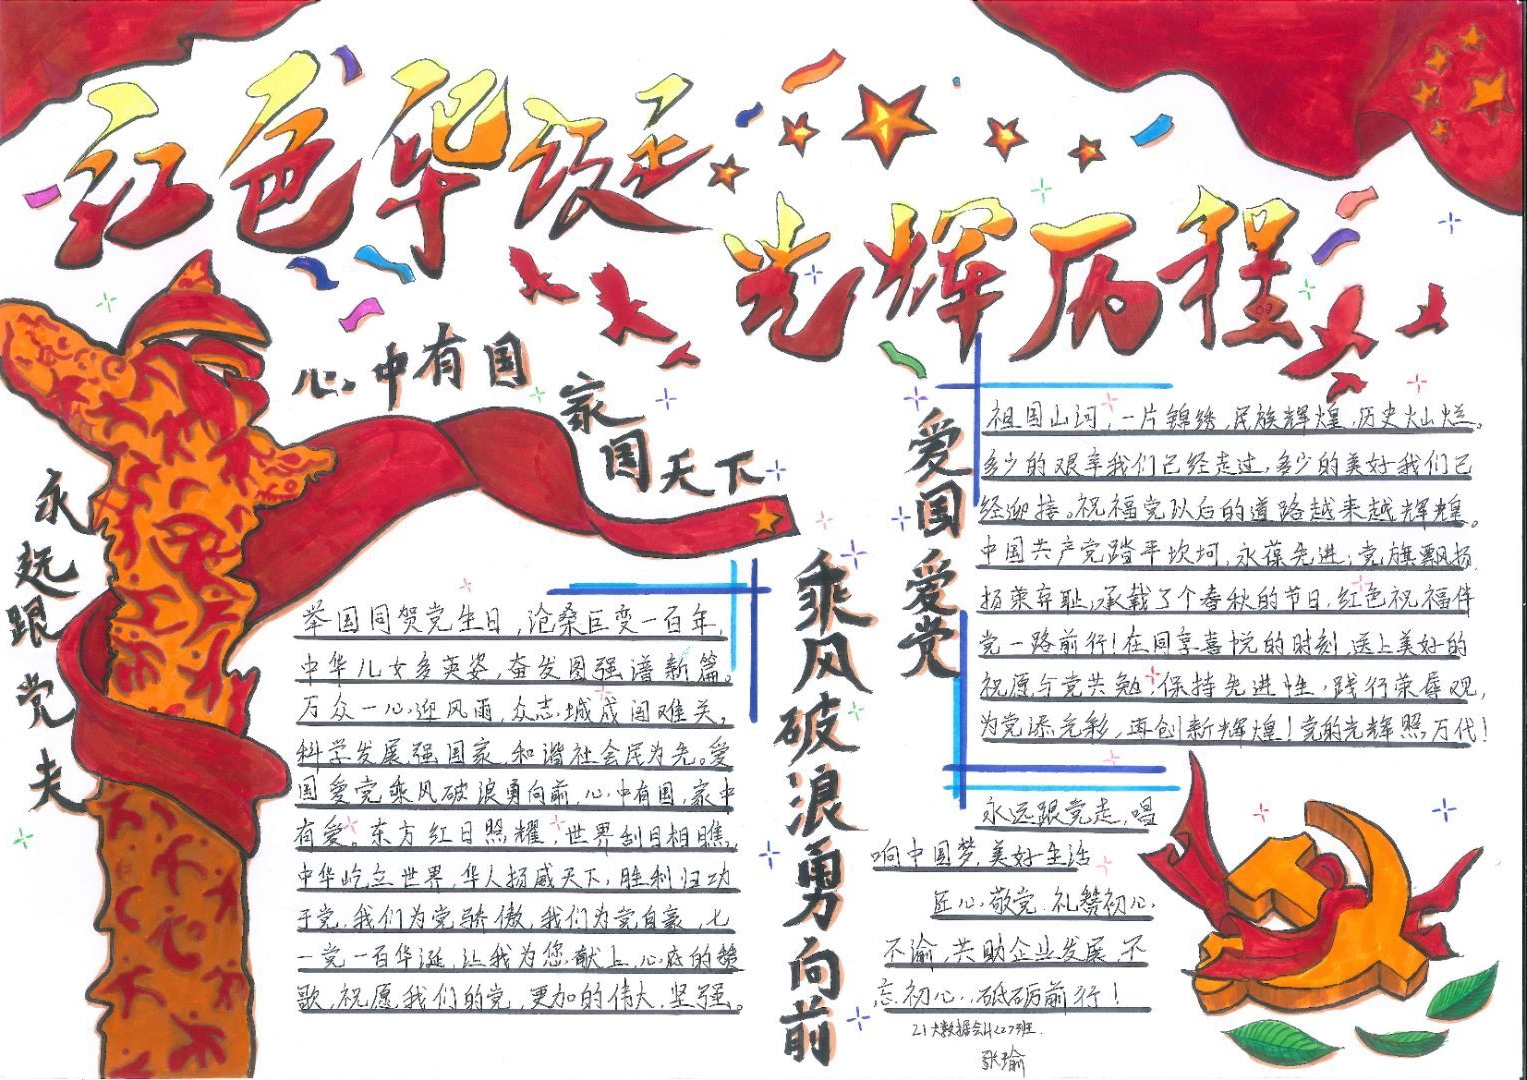 红色华诞
光辉历程
心中有国
家国天下
永远跟党夫
举国同贺党生日，沧桑巨变一百年
中华儿女多英姿，奋发图强谱新篇。
万众一心迎风雨，众志成城闯难关，
科学发展强国家，和谐社会民为先。爱
国爱党乘风破浪勇向前，心中有国，家中
有爱。东方红日照耀，世界刮目相瞧，
中华屹立世界，华人扬威天下，胜利归功
于党，我们为党骄傲，我们为党自豪，七
一党一百华诞，让我为您献上，心底的赞
歌，祝愿我们的党，更加的伟大，坚强。
乘风破浪勇向前
爱国爱党
祖国山河，一片锦绣，民族辉煌，历史灿烂。
多少的艰辛我们已经走过，多少的美好我们已
经迎接。祝福党以后的道路越来越辉煌。
中国共产党踏平坎坷，永葆先进；党旗飘扬
扬荣弃耻，承载了个春秋的节日，红色祝福伴
党一路前行！在同享喜悦的时刻，送上美好的
祝愿与党共勉！保持先进性，践行荣辱观，
为党添光彩，再创新辉煌！党的光辉照万代！
永远跟党走，唱
响中国梦，美好生活
匠心敬党，礼赞初心，
不渝，共助企业发展，不
忘初心，砥砺前行！
21大数据会计227班
张瑜